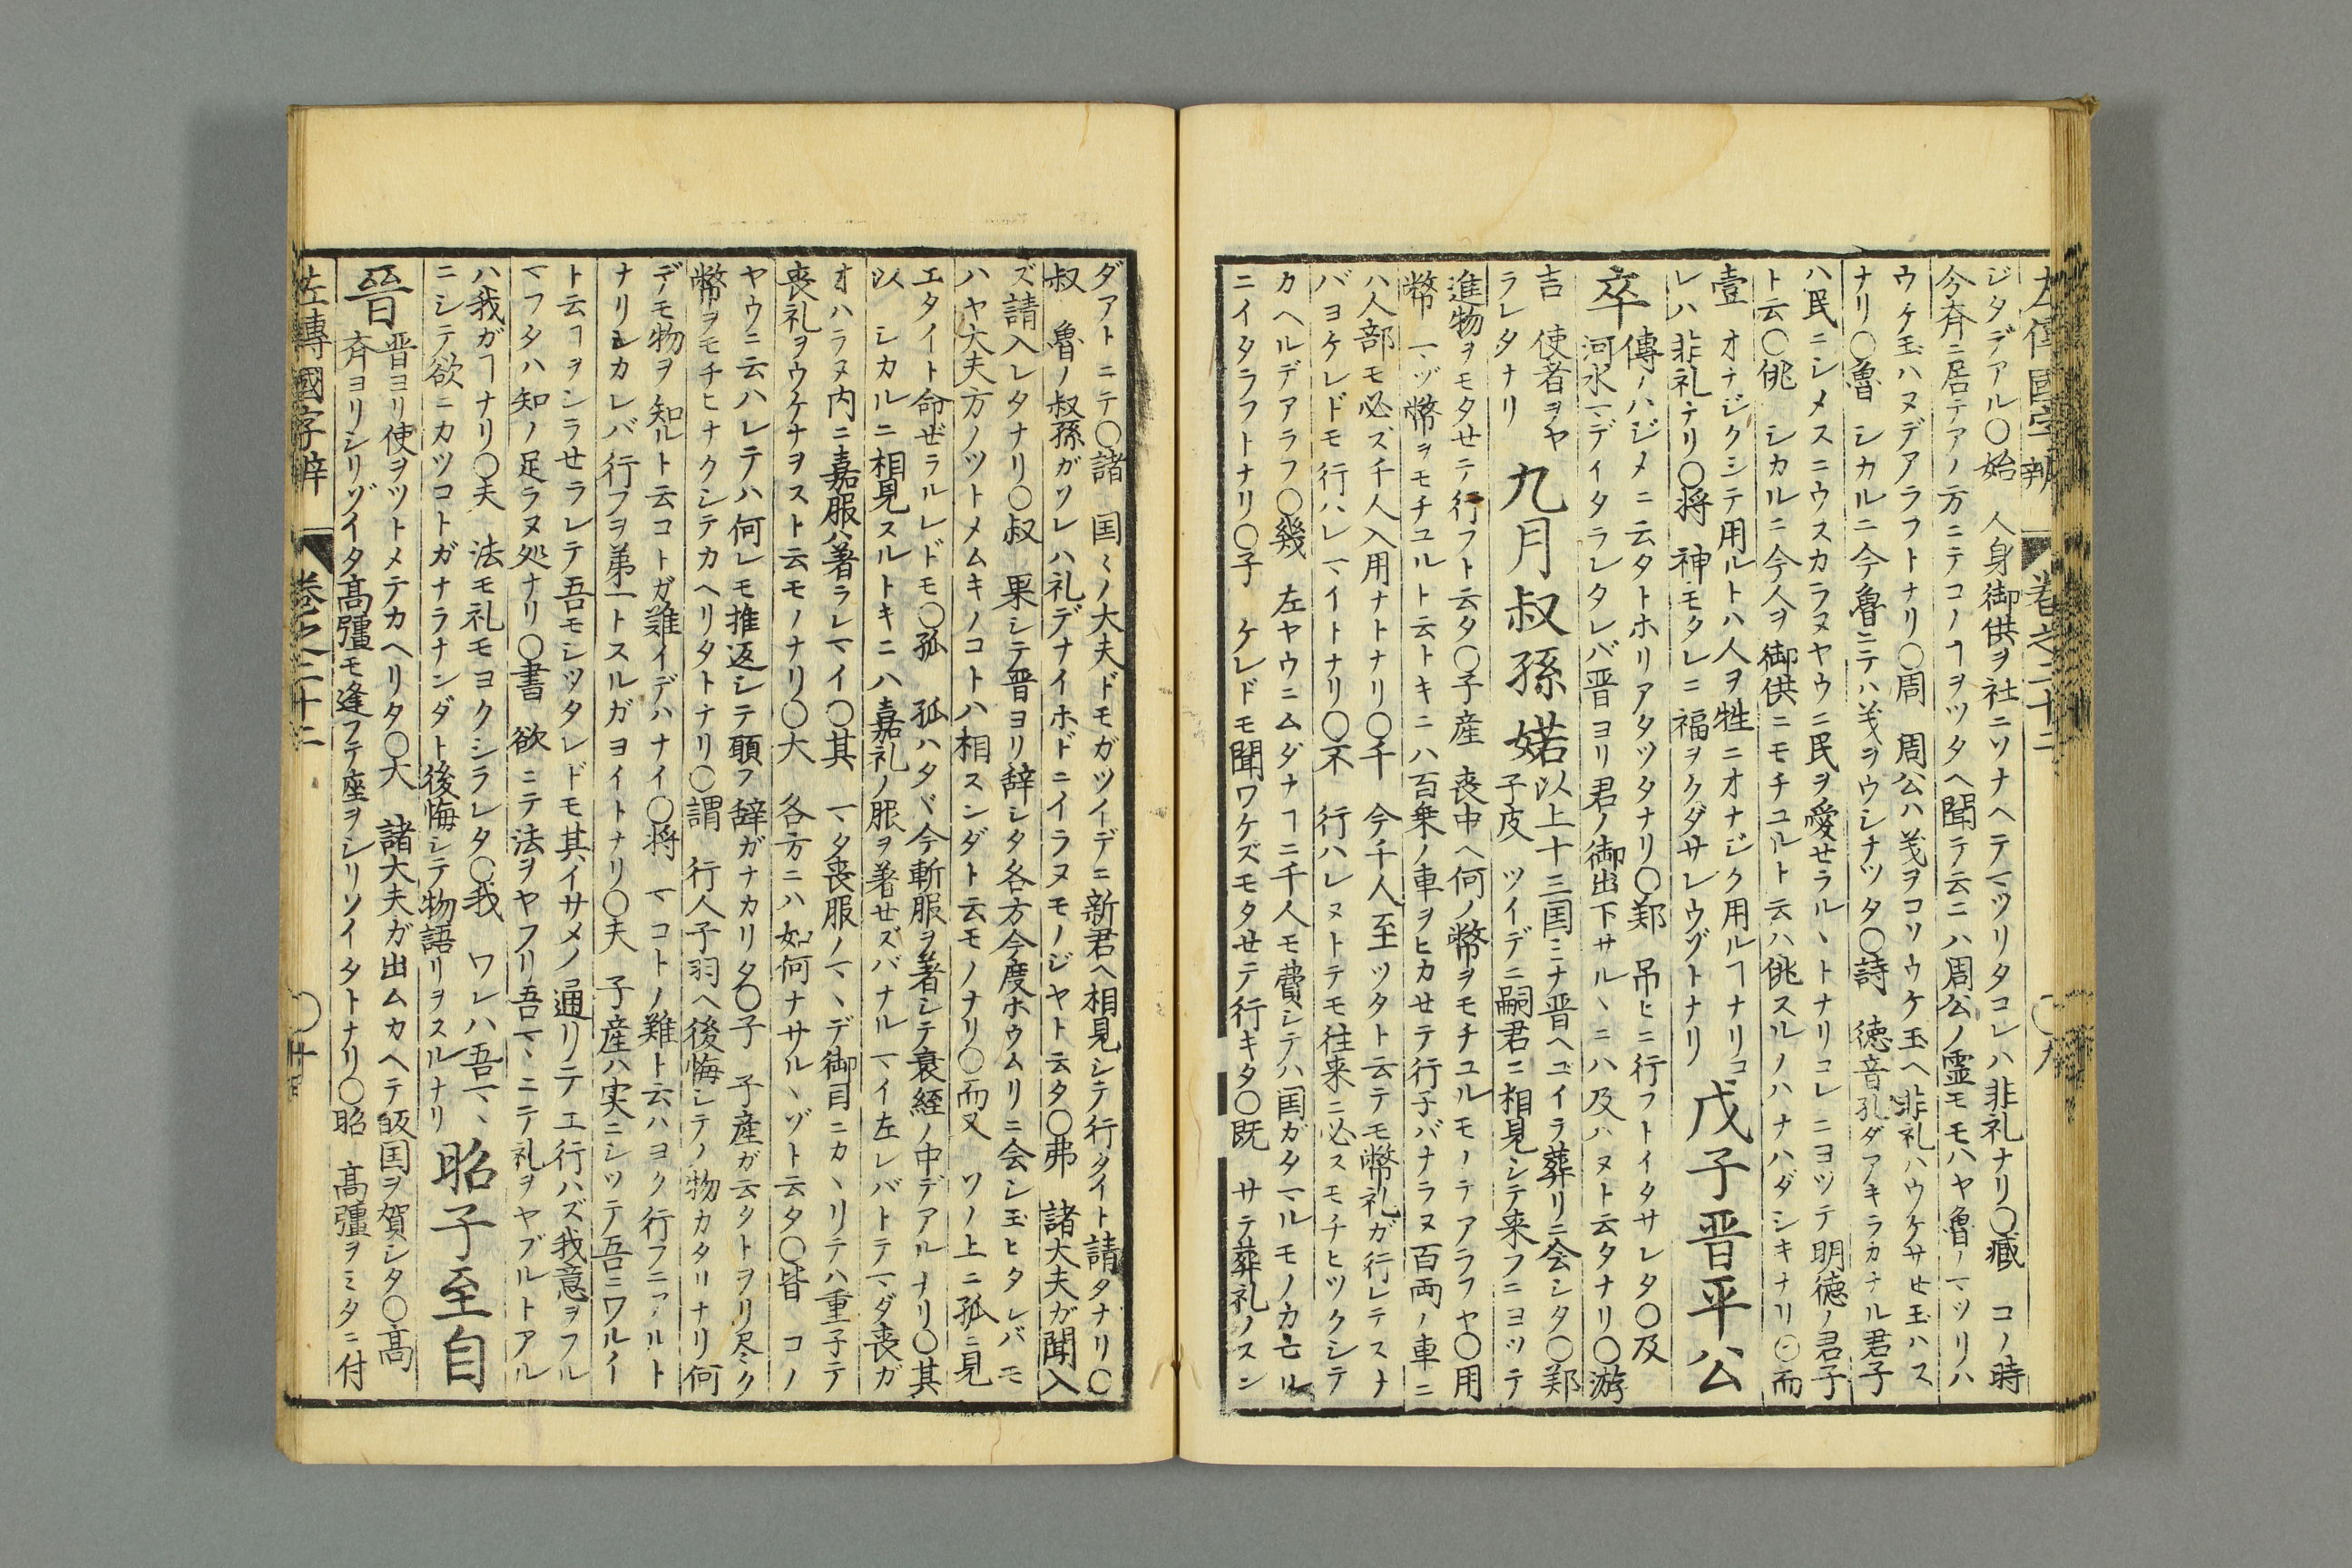 左傳國字辨 巻之二十二 〇九
ジタデアル〇始 人身御供ヲ社ニソナヘテマツリタコレハ非礼ナリ〇臧 コノ時
今斉ニ居テアノ方ニテコノヿヲツタヘ聞テ云ニハ周公ノ霊モモハヤ魯ノマツリハ
ウケ玉ハヌデアラフトナリ〇周 周公ハ義ヲコソウケ玉ヘ非礼ハウケサせ玉ハス
ナリ〇魯 シカルニ今魯ニテハ義ヲウシナツタ〇詩 徳音孔ダアキラカナル君子
ハ民ニシメスニウスカラヌヤウニ民ヲ愛せラルヽトナリコレニヨツテ明徳ノ君子
ト云〇佻 シカルニ今人ヲ御供ニモチユルト云ハ佻スルノハナハダシキナリ〇而
壹 オナジクシテ用ルトハ人ヲ牲ニオナジク用ルヿナリコ
レハ非礼ナリ〇将 神モタレニ福ヲクダサレウゾトナリ
戊子晋平公
卒
傳ノハジメニ云タトホリアタツタナリ〇鄭 吊ヒニ行フトイタサレタ〇及
河水マデイタラレタレバ晋ヨリ君ノ御出下サルヽニハ及ハヌト云タナリ〇游
吉 使者ヲヤ
ラレタナリ
九月叔孫婼
以上十三国ミナ晋ヘゴイラ葬リニ会シタ〇鄭
子皮 ツイデニ嗣君ニ相見シテ来フニヨツテ
進物ヲモタせテ行フト云タ〇子産 喪中ヘ何ノ幣ヲモチユルモノテアラフヤ〇用
幣 一ヅ幣ヲモチユルト云トキニハ百乗ノ車ヲヒカせテ行子バナラヌ百両ノ車ニ
ハ人部モ必ズ千人入用ナトナリ〇千 今千人至ツタト云テモ幣礼ガ行レテスナ
バヨケレドモ行ハレマイトナリ〇不 行ハレヌトテモ往来ニ必スモチヒツクシテ
カヘルデアラフ〇幾 左ヤウニムダナヿニ千人モ費シテハ国ガタマルモノカ亡ル
ニイタラフトナリ〇子 ケレドモ聞ワケズモタせテ行キタ〇既 サテ葬礼ノスン
ダアトニテ〇諸 国々ノ大夫ドモガツイデニ新君ヘ相見シテ行タイト請タナリ〇
叔 魯ノ叔孫ガソレハ礼デナイホドニイラヌモノジヤト云タ〇弗 諸大夫ガ聞入
ズ請入レタナリ〇叔 果シテ晋ヨリ辞シタ各方今度ホウムリニ会シ玉ヒタレバモ
ハヤ大夫方ノツトメムキノコトハ相スンダト云モノナリ〇而又 ソノ上ニ孤ニ見
エタイト命ぜラルレドモ〇孤 孤ハタヾ今斬服ヲ著シテ衰絰ノ中デアルナリ〇其
以 シカルニ相見スルトキニハ嘉礼ノ服ヲ著せズバナルマイ左レバトテマダ喪ガ
オハラヌ内ニ嘉服ハ著ラレマイ〇其 マタ喪服ノマヽデ御目ニカヽリテハ重子テ
喪礼ヲウケナヲスト云モノナリ〇大 各方ニハ如何ナサルヽゾト云タ〇皆 コノ
ヤウニ云ハレテハ何レモ推返シテ願フ辞ガナカリタ〇子 子産ガ云タトヲリ尽ミク
幣ヲモチヒナクシテカヘリタトナリ〇謂 行人子羽ヘ後悔シテノ物カタリナリ何
デモ物ヲ知ルト云コトガ難イデハナイ〇将 マコトノ難ト云ハヨク行フニアルト
ナリシカレバ行フヲ弟一トスルガヨイトナリ〇夫 子産ハ実ニシツテ吾ニワルイ
ト云ヿヲシラせラレテ吾モシツタレドモ其イサメノ通リテエ行ハズ我意ヲフル
マフタハ知ノ足ラヌ処ナリ〇書 欲ニテ法ヲヤフリ吾マヽニテ礼ヲヤブルトアル
ハ我ガヿナリ〇夫 法モ礼モヨクシラレタ〇我 ワレハ吾マヽ
ニシテ欲ニカツコトガナラナンダト後悔シテ物語リヲスルナリ
昭子至自
晉
晋ヨリ使ヲツトメテカヘリタ〇大 諸大夫ガ出ムカヘテ皈国ヲ賀シタ〇高
斉ヨリシリゾイタ高彊モ逢フテ座ヲシリソイタトナリ〇昭 高彊ヲミタニ付
左傳國字辨 巻之二十二 〇廿